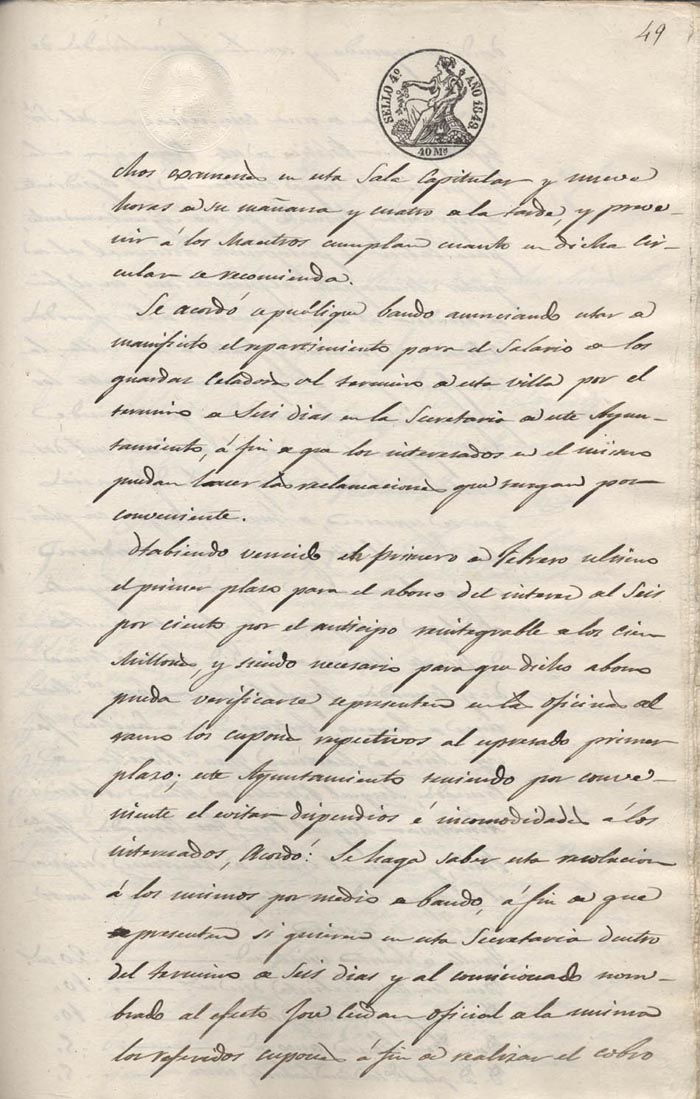 49
SELLO 4º AÑO 1849.
40 Ms
chos examenes en esta Sala Capitular y nueve
horas de su mañana y cuatro de la tarde, y preve-
nir á los Maestros cumplan cuanto en dicha Cir-
cular se recomienda.
Se acordó se publique bando anunciando estar de
manifiesto el repartimiento para el Salario de los
guardas Celadores del termino de esta villa por el
termino de Seis dias en la Secretaria de este Ayun-
tamiento, á fin de que los interesados en el mismo
puedan hacer las reclamaciones que tengan por
conveniente.
Habiendo vencido el primero de Febrero ultimo
el primer plazo para el abono del interes del Seis
por ciento por el anticipo reintegrable de los Cien
Millones, y siendo necesario para que dicho abono
pueda verificarse se presenten en las oficinas del
ramo los cupones respectivos al espresado primer
plazo; este Ayuntamiento teniendo por conve-
niente el evitar dispendios é incomodidades á los
interesados, Acordó: Se haga saber esta resolucion
á los mismos por medio de bando, á fin de que
presenten si quieren en esta Secretaria dentro
del termino de Seis dias y al comisionado nom-
brado al efecto José oficial de la misma
los referidos cupones á fin de realizar el cobro